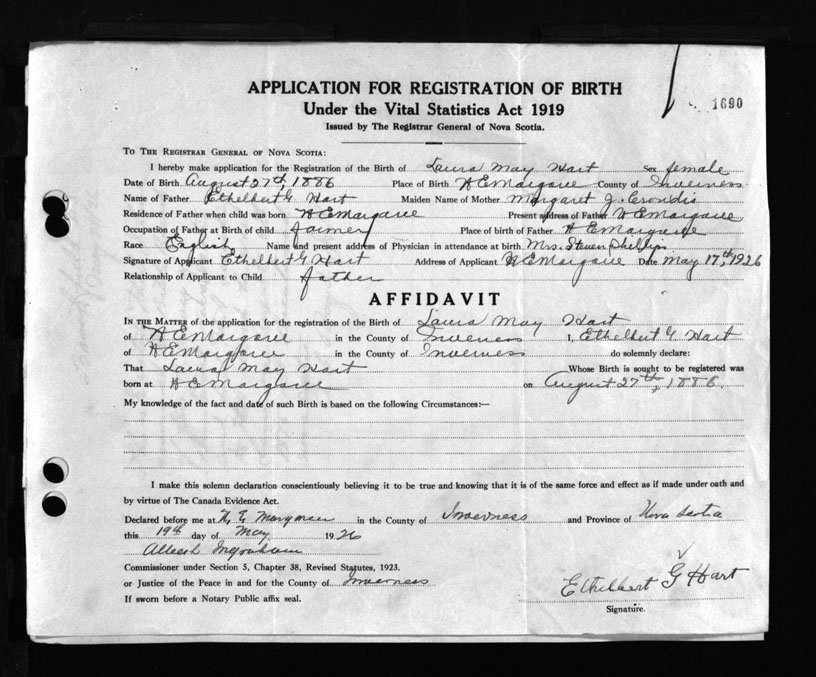 APPLICATION FOR REGISTRATION OF BIRTH
Under the Vital Statistics Act 1919
1690
Issued by The Registrar General of Nova Scotia.
To The Registrar General of Nova Scotia:
I hereby make application for the Registration of the Birth of Laura May Hart Sex female
Date of Birth August 27th, 1886 Place of Birth N E Margaree County of Inverness
Name of Father Ethelbert G. Hart Maiden Name of Mother Margaret J.
Residence of Father when child was born N E Margaree Present address of Father N E Margaree
Occupation of Father at Birth of child farmer Place of birth of Father N E Margaree
Race English Name and present address of Physician in attendance at birth Mrs. Phillips
Signature of Applicant Ethelbert G Hart Address of Applicant N E Margaree Date May 17th, 1926
Relationship of Applicant to Child father
AFFIDAVIT
In the Matter of the application for the registration of the Birth of Laura May Hart
of N E Margaree in the County of Inverness I, Ethelbert G. Hart
of N E Margaree in the County of Inverness do solemnly declare:
That Laura May Hart Whose Birth is sought to be registered was
born at N E Margaree on August 27th, 1886.
My knowledge of the fact and date of such Birth is based on the following Circumstances:—
I make this solemn declaration conscientiously believing it to be true and knowing that it is of the same force and effect as if made under oath and
by virtue of The Canada Evidence Act.
Declared before me at N. E. Margaree in the County of Inverness and Province of Nova Scotia
this 19th day of May 1926
Ingraham
Commissioner under Section 5, Chapter 38, Revised Statutes, 1923.
or Justice of the Peace in and for the County of Inverness
If sworn before a Notary Public affix seal.
Ethelbert G Hart
Signature.